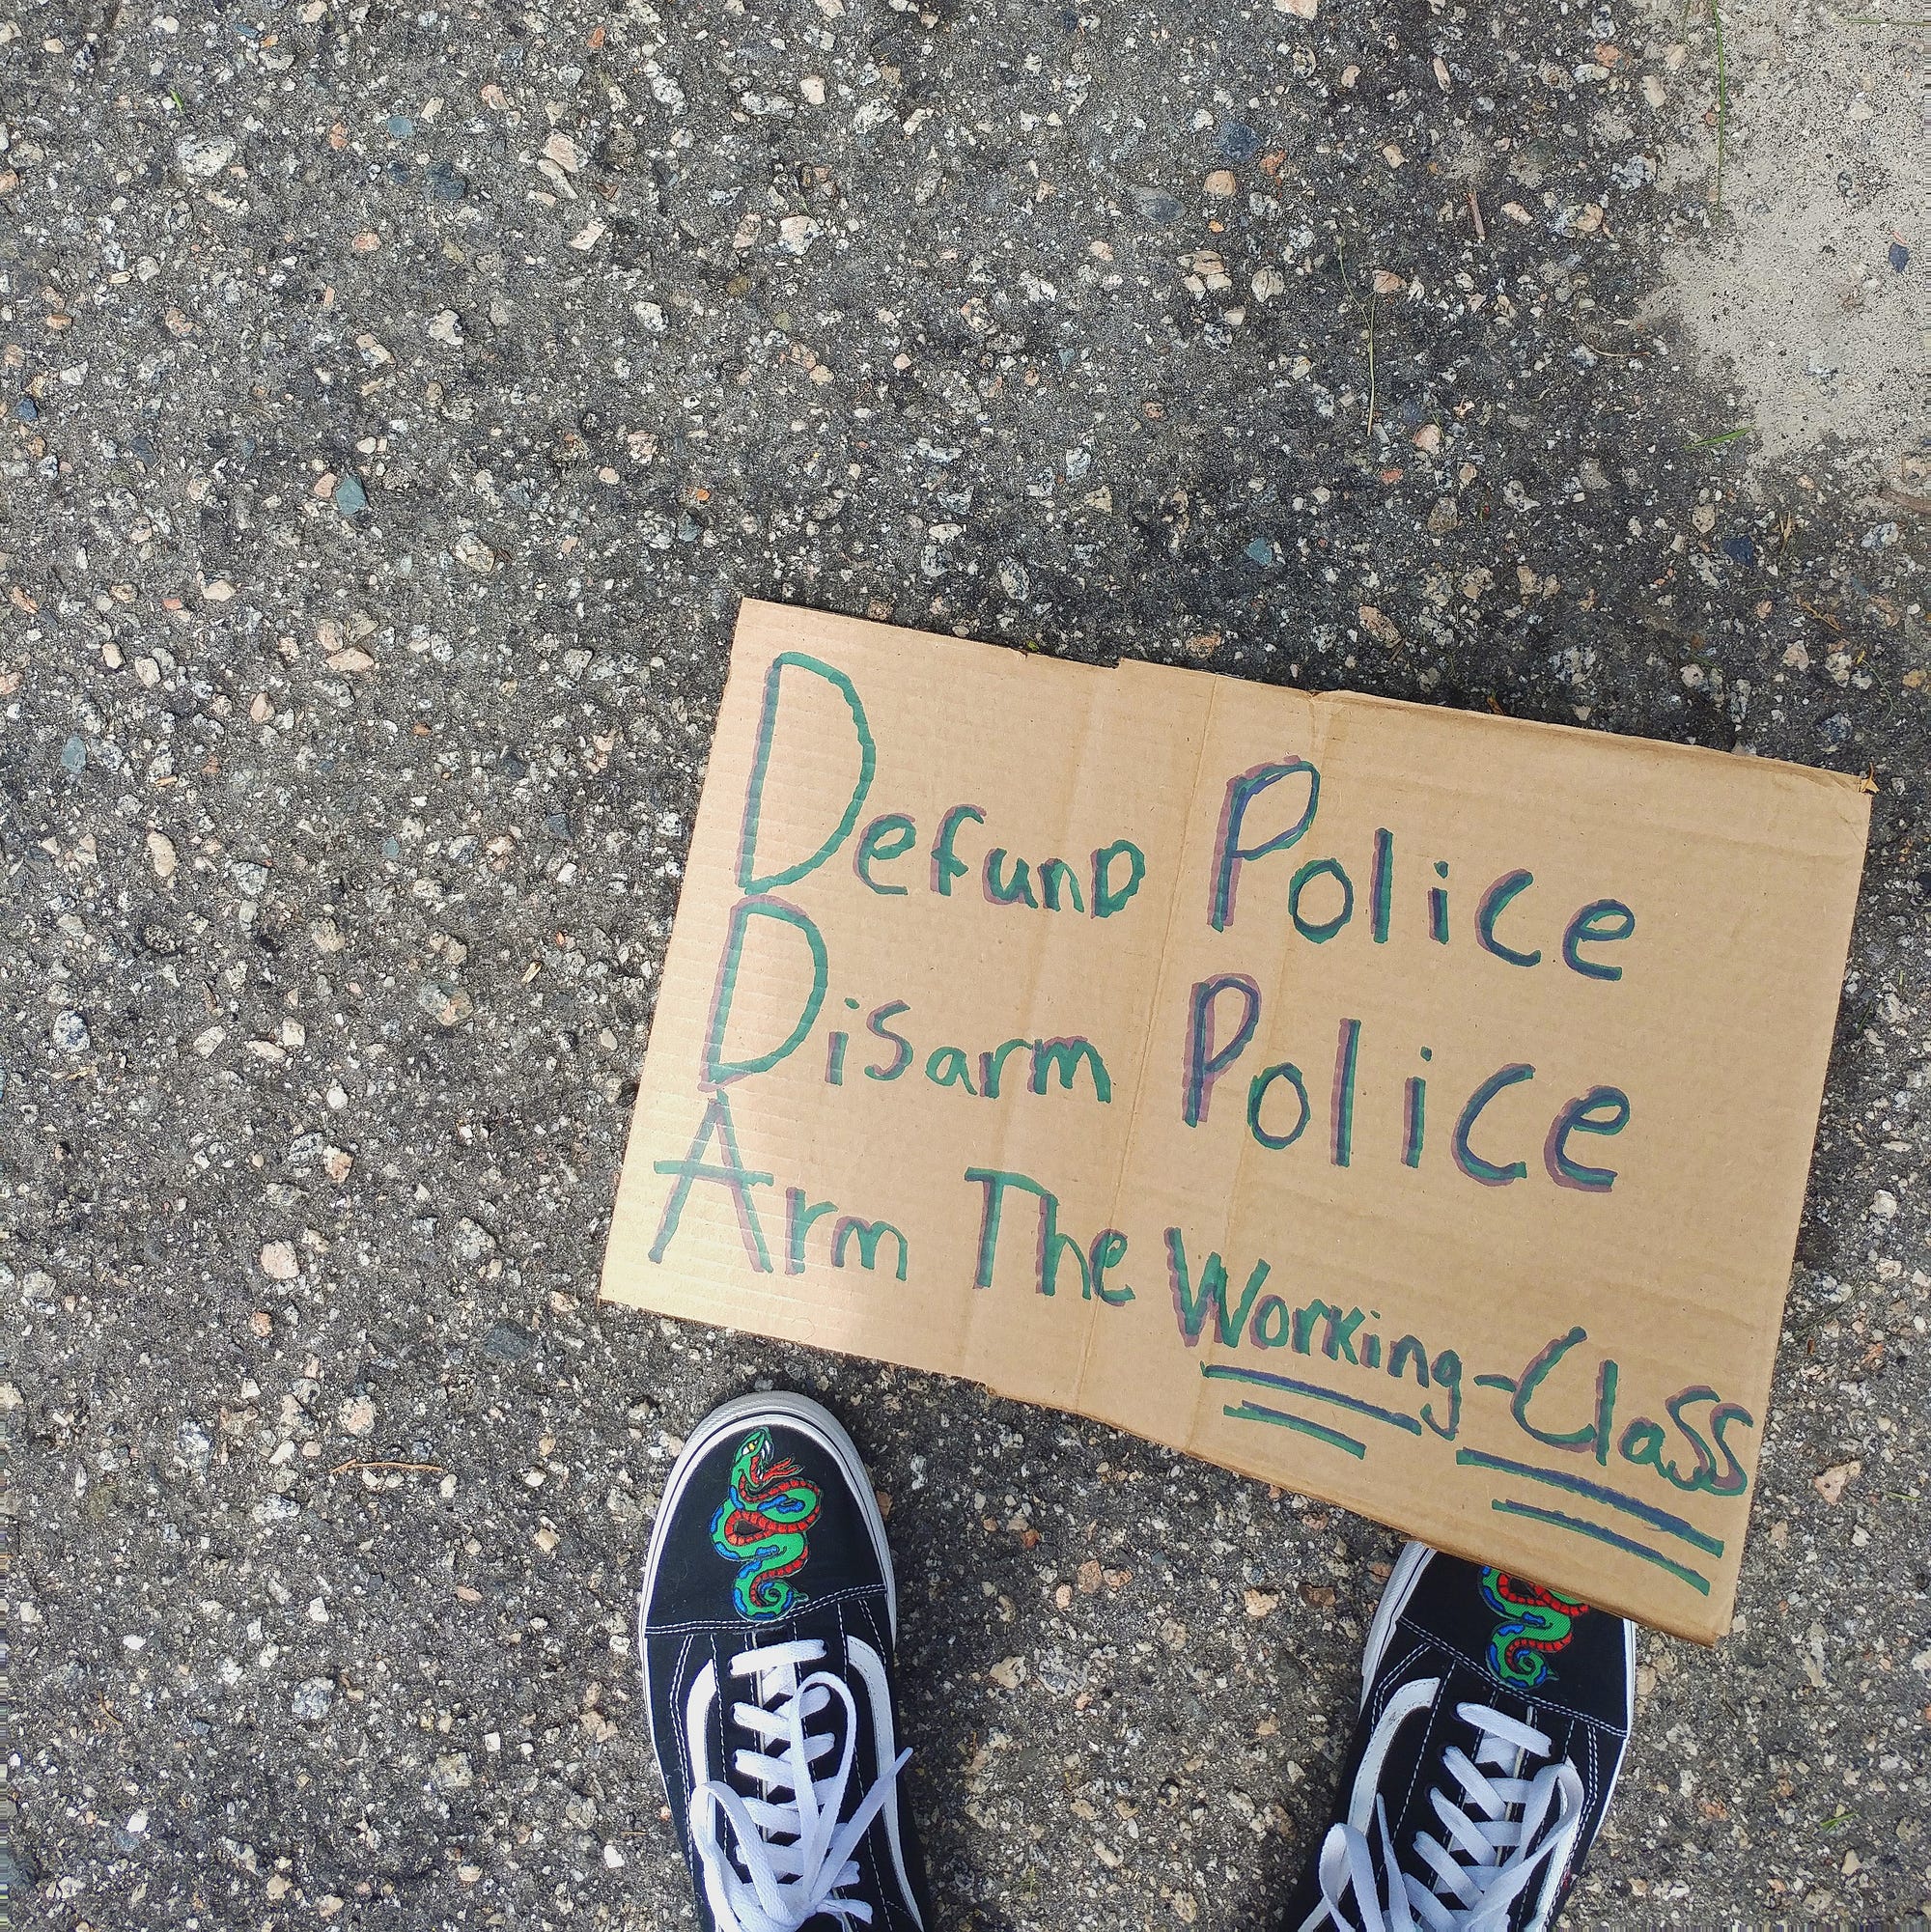 Defund Police
Disarm Police
Arm The Working-Class